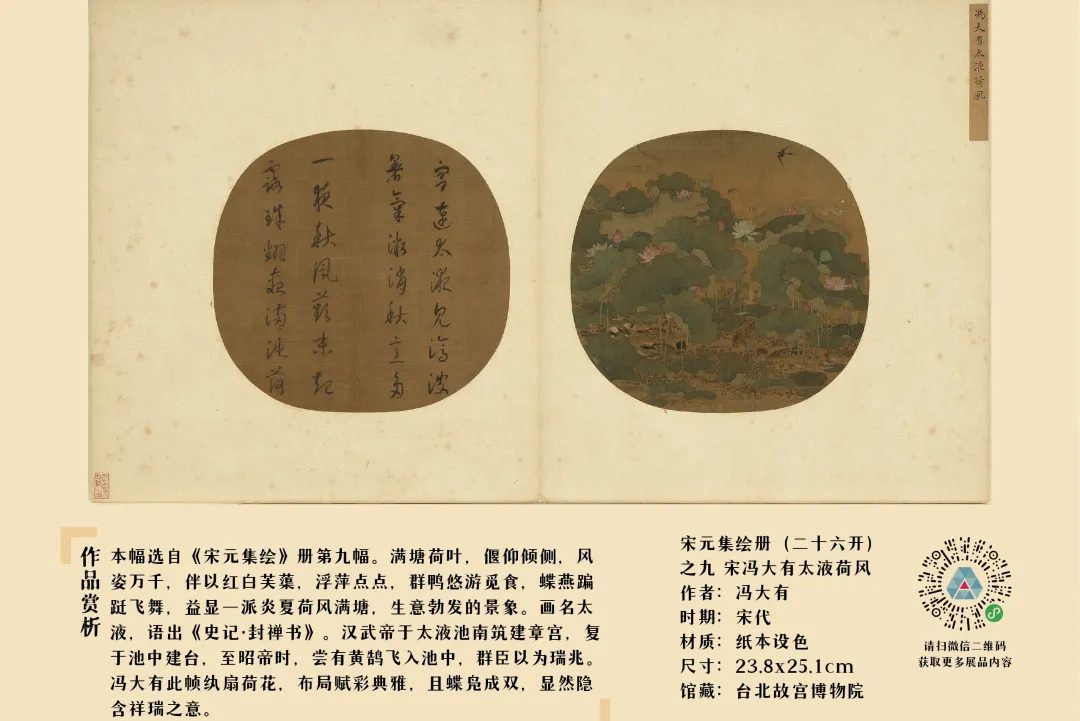 馮大有太液荷風
宮連太液見滄波
暑氣消秋意多
一夜秋風末起
露珠翻滿池荷
作品赏析
本幅选自《宋元集绘》册第九幅。满塘荷叶，偃仰倾侧，风
姿万千，伴以红白芙蕖，浮萍点点，群鸭悠游觅食，蝶燕蹁
跹飞舞，益显一派炎夏荷风满塘，生意勃发的景象。画名太
液，语出《史记·封禅书》。汉武帝于太液池南筑建章宫，复
于池中建台，至昭帝时，尝有黄鹄飞入池中，群臣以为瑞兆。
冯大有此帧纨扇荷花，布局赋彩典雅，且蝶凫成双，显然隐
含祥瑞之意。
宋元集绘册（二十六开）
之九 宋冯大有太液荷风
作者：冯大有
时期：宋代
材质：纸本设色
尺寸：23.8x25.1cm
馆藏：台北故宫博物院
请扫微信二维码
获取更多展品内容